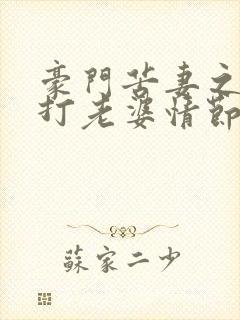 豪門苦妻之
打老婆情節
蘇家二少